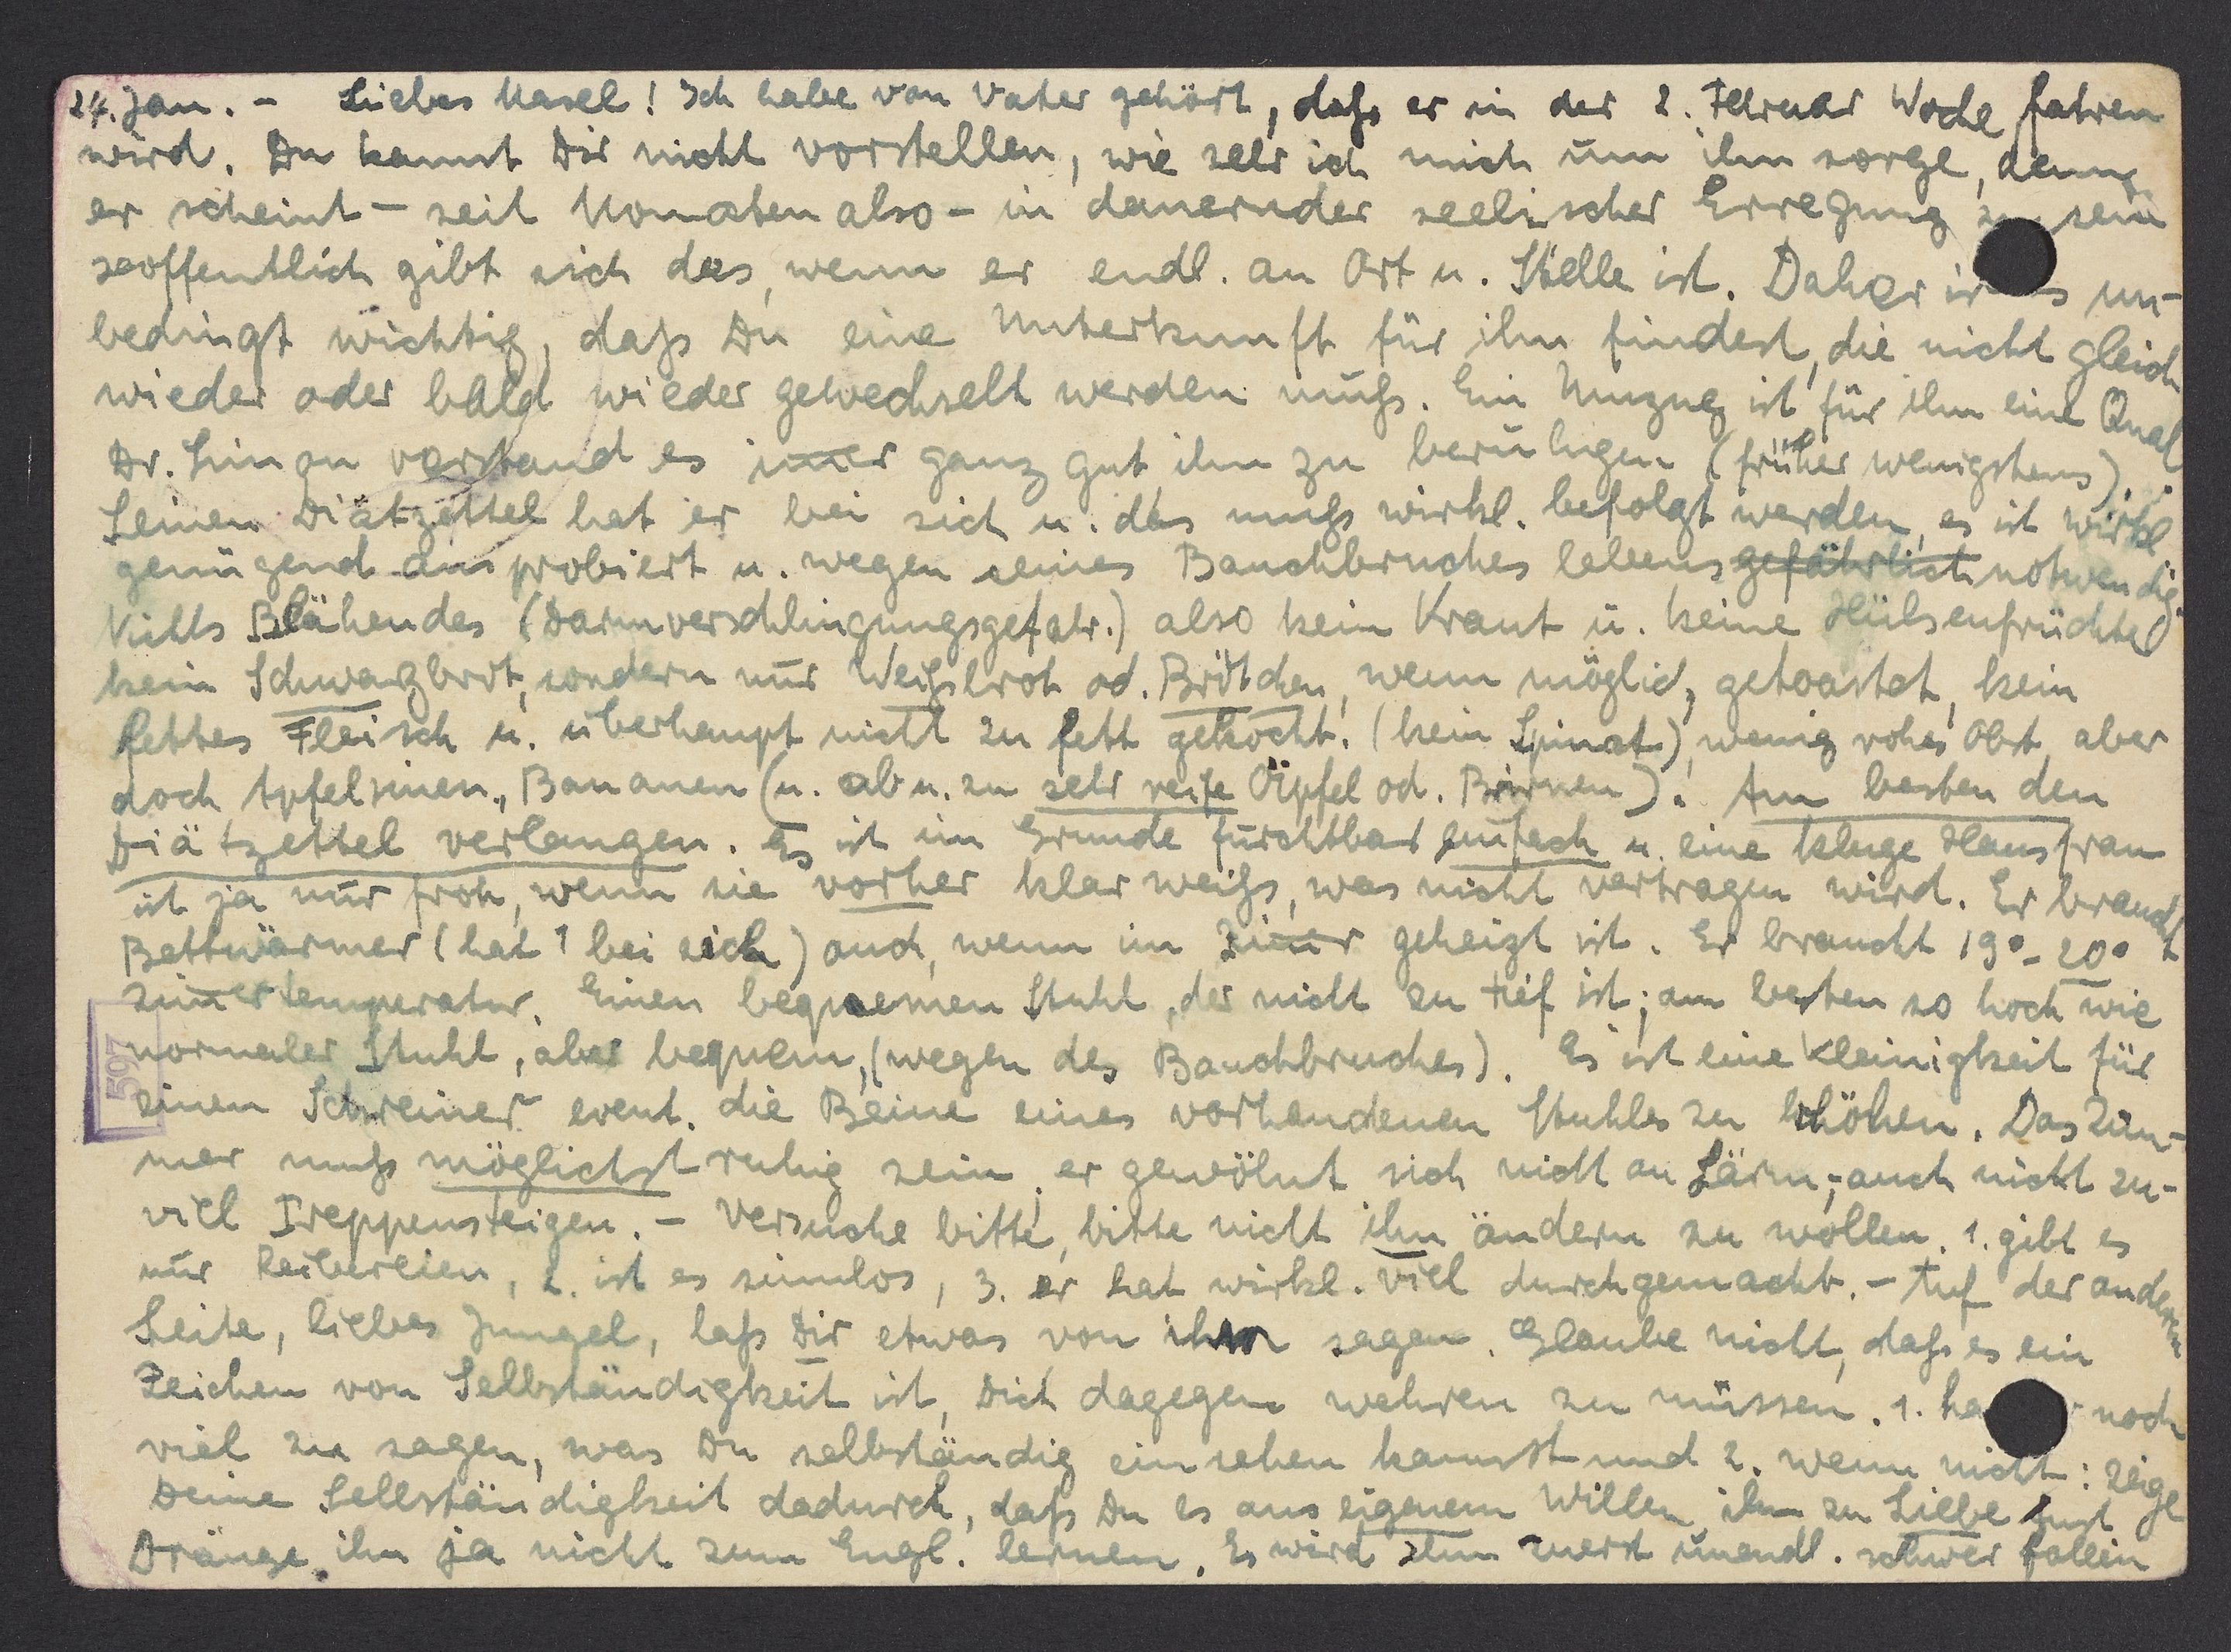 24. Jan. - Liebes Masel! Ich habe von Vater gehört, daß er in der 2. Februar Woche fahren
wird. Du kannst Dir nicht vorstellen, wie sehr ich mich um ihn sorge, denn
er scheint - seit Monaten also - in dauernder seelischer Erregung zu sein
hoffentlich gibt sich das, wenn er endl. an Ort u. Stelle ist. Daher is s un-
bedingt wichtig, daß Du eine Unterkunft für ihn findest, die nicht gleich
wieder oder bald wieder gewechselt werden muß. Ein Umzug ist für ihn eine Qual
Dr. verstand es im̄er ganz gut ihn zu beruhigen (früher wenigstens).
Seinen Diätzettel hat er bei sich u. das muß wirkl. befolgt werden, es ist wirkl.
genügend ausprobiert u. wegen seines Bauchbruches lebensgefährlich notwendig.
Nichts Blähendes (Darmverschlingungsgefahr.) also kein Kraut u. keine Hülsenfrüchte
kein Schwarzbrot, sondern nur Weißbrot od. Brötchen, wenn möglich, getoastet, kein
fettes Fleisch u. überhaupt nicht zu fett gekocht. (kein Spinat), wenig rohes Obst, aber
doch Apfelsinen, Bananen (u. ab u. zu sehr reife Äpfel od. Birnen). Am besten den
Diätzettel verlangen. Es ist im Grunde furchtbar einfach u. eine kluge Hausfrau
ist ja nur froh, wenn sie vorher klar weiß, was nicht vertragen wird. Er braucht
Bettwärmer (hat 1 bei sich) auch, wenn im Zim̄er geheizt ist. Er braucht 19°-20°
Zim̄ertemperatur. Einen bequemen Stuhl, der nicht zu tief ist; am besten so hoch wie
normaler Stuhl, aber bequem, (wegen des Bauchbruches). Es ist eine Kleinigkeit für
einen Schreiner event. die Beine eines vorhandenen Stuhles zu erhöhen. Das Zim-
mer muß möglichst ruhig sein, er gewöhnt sich nicht an Lärm; auch nicht zu-
viel Treppensteigen. - Versuche bitte, bitte nicht ihn ändern zu wollen. 1. gibt es
nur Reibereien, 2. ist es sinnlos, 3. er hat wirkl. viel durchgemacht. - Auf der anderen
Seite, liebes Jungel, laß Dir etwas von ihm sagen. Glaube nicht, daß es ein
Zeichen von Selbständigkeit ist, Dich dagegen wehren zu müssen. 1. ha noch
viel zu sagen, was Du selbständig einsehen kannst und 2. wenn nicht: zeige
Deine Selbständigkeit dadurch, daß Du es aus eigenem Willen ihm zu Liebe tust
Dränge ihn ja nicht zum Engl. lernen. Es wird ihm zuerst unendl. schwer fallen
597